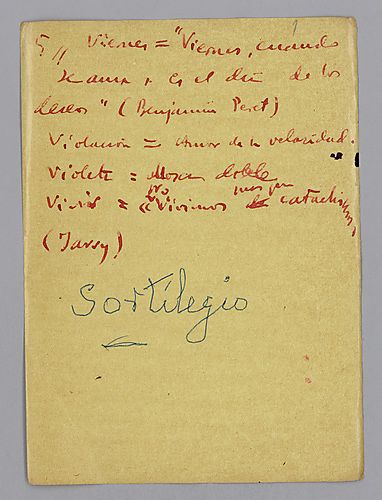 5 // Viernes = "Viernes, cuando
se ama, es el día de los
deseos" (Benjamin Peret)
Violación = Amor de la velocidad.
Violeta = Mosca doble
Vivir = "No vivimos más que cataclismos
(Jarry)
Sortilegio